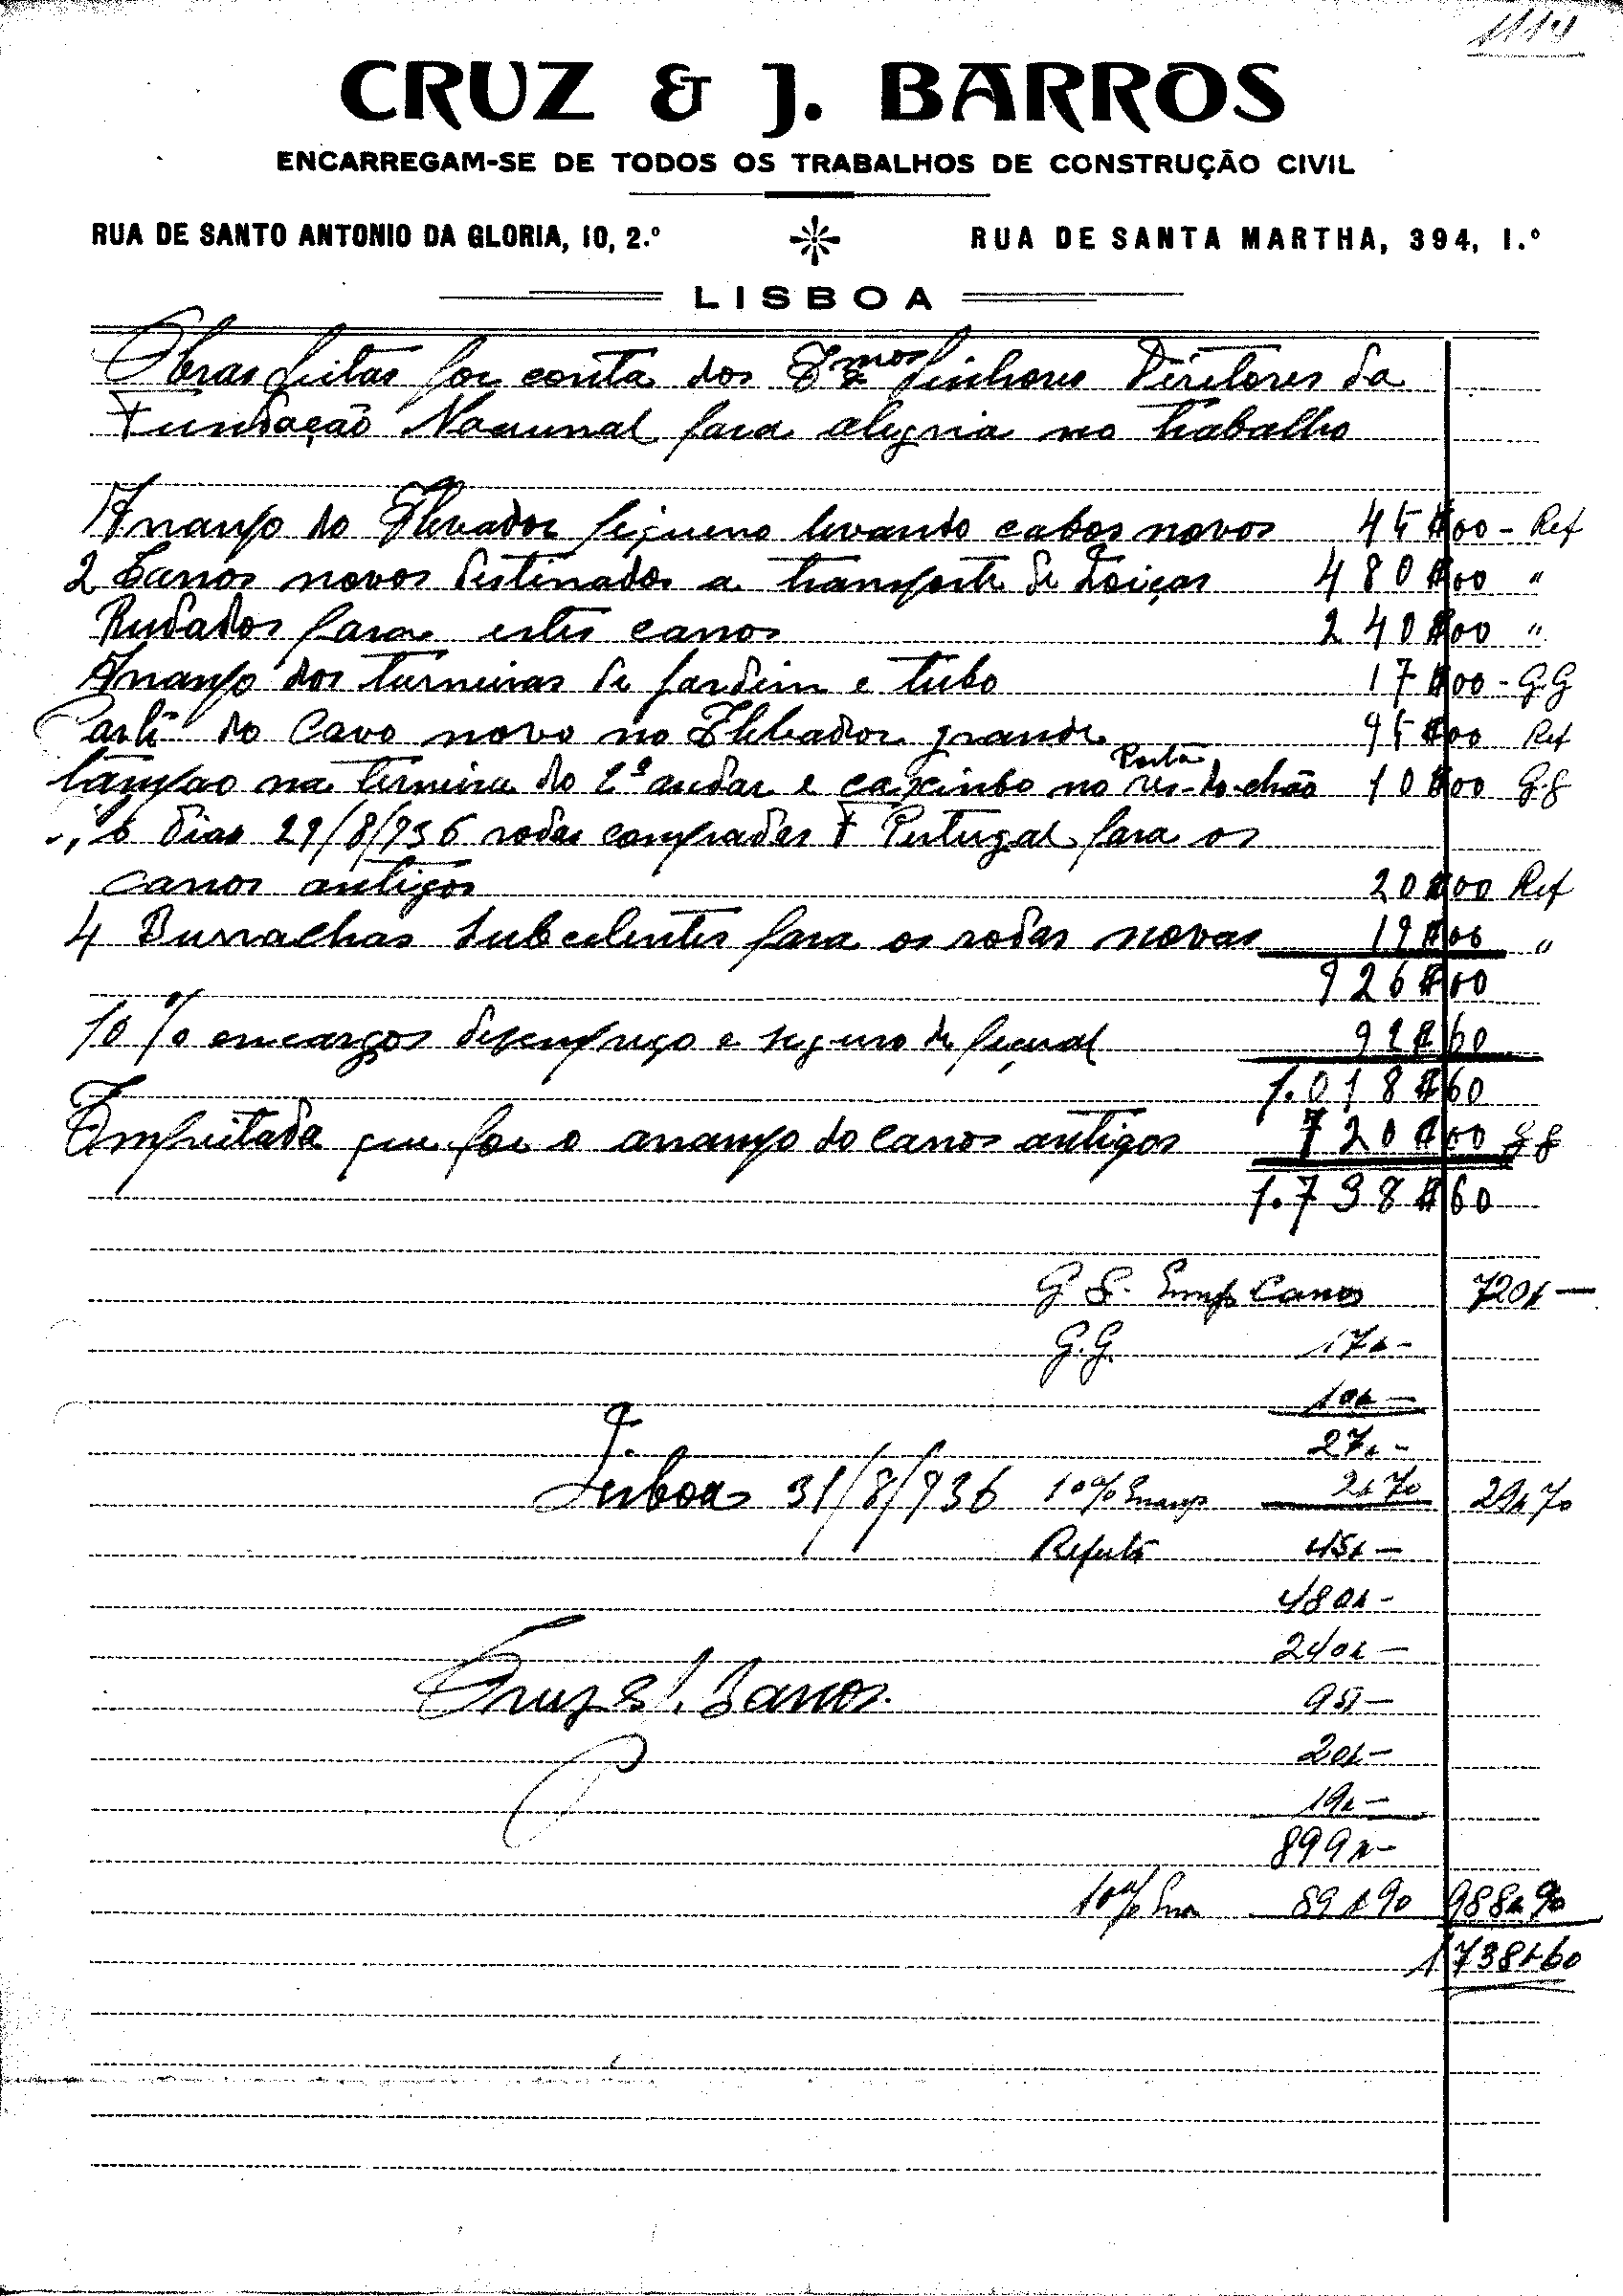 1114
CRUZ & J. BARROS
ENCARREGAM-SE DE TODOS OS TRABALHOS DE CONSTRUÇÃO CIVIL
RUA DE SANTO ANTONIO DA GLORIA, 10, 2.º
RUA DE SANTA MARTHA, 394, 1.º
LISBOA
Obras feitas por conta dos Exmos Sinhores Diretores da
Fundação Naciunal para alegria no trabalho
Arranjo do Elevador piqueno levando cabos novos 45$00 - Ref
2 Carros novos distinados a transporte de Loiças 480$00 "
Rudados para estes carros 240$00 "
Arranjo dos turneiras de jardim e tubo 17$00 - G.G
do Cavo novo no Ellevador grande 95$00 Ref
tampão na turneira do 2º andar e caxinbo no Porta res-do-chão 10$00 G.G
dias 29/8/936 rodas compradas F Purtugal para os
carros antigos 20$00 Ref
4 Burrachas subcelentes para os rodas novas 19$00 "
926$00
10% emcargos desemprego e siguro de peçual 92$60
1.018$60
Empreitada que foi o arranjo do carros antigos 720$00 G.G
1.738$60
G G. Emp Carros 720$—
G.G. 17$-
10$—
27$-
Lisboa 31/8/936 10% Encargo 2$70 29$70
Refeito 45$—
480$-
240$—
Cruz & J. Barros. 95$—
20$—
19$—
899$-
10% Enc 89$90 988$90
1738$60